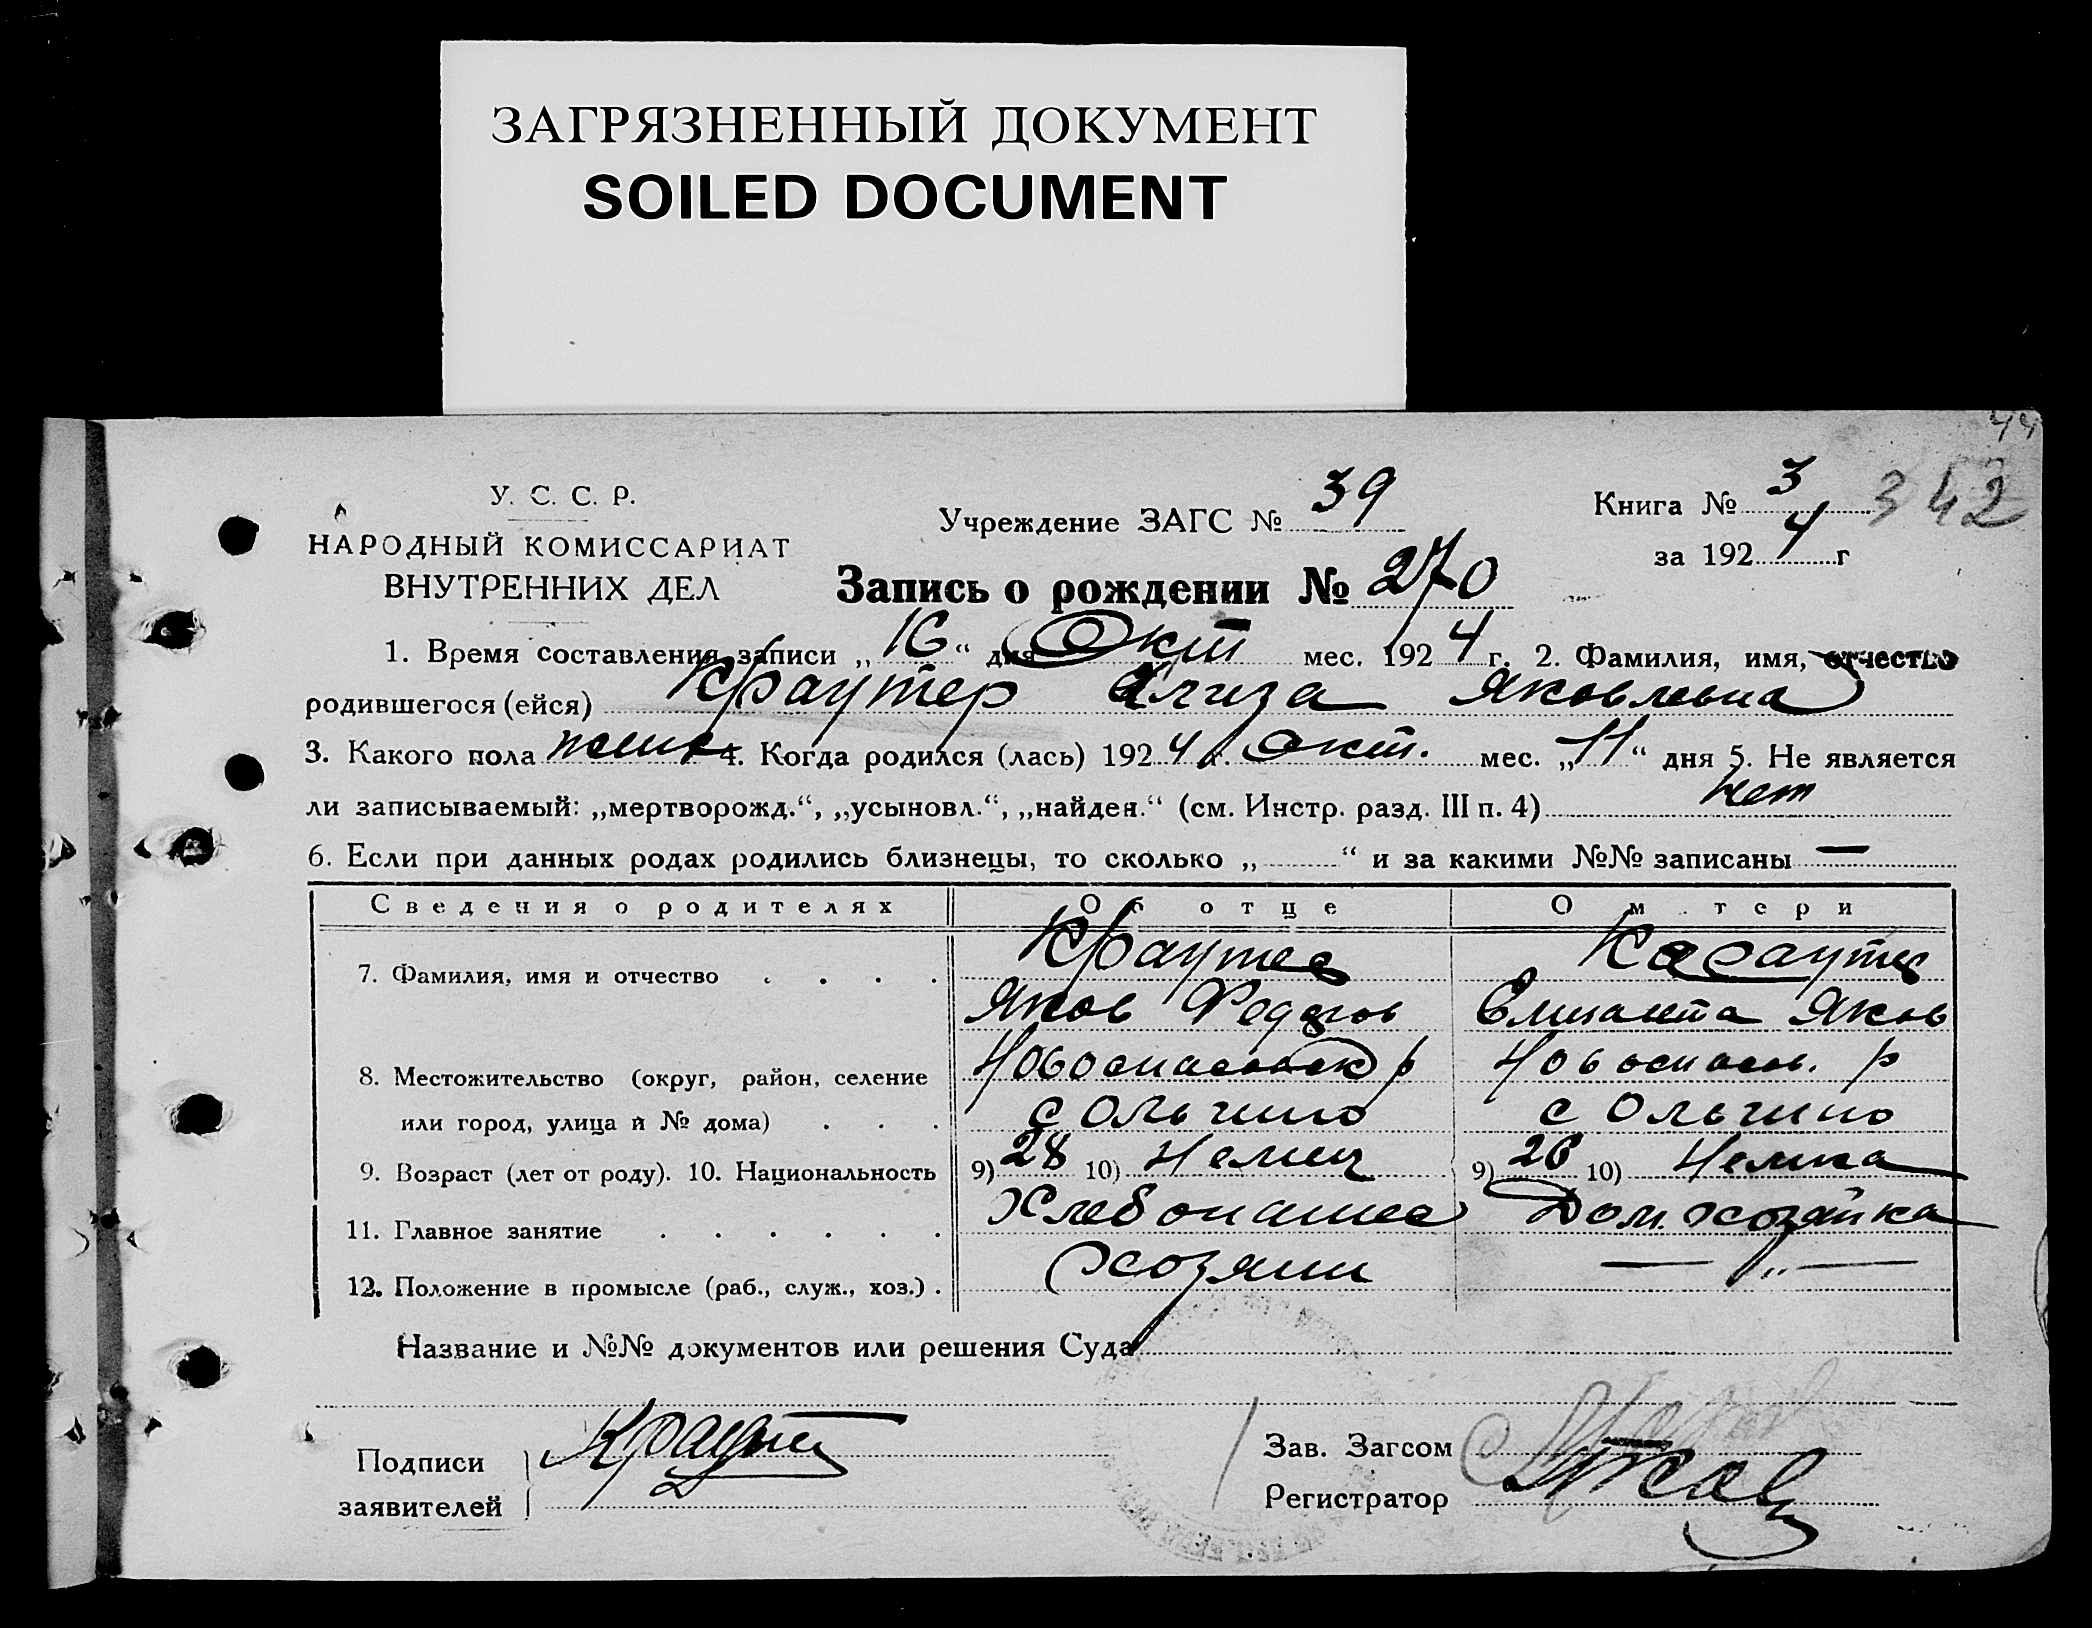 ЗАГРЯЗНЕННЫЙ ДОКУМЕНТ
SOILED DOCUMENT
44
У. С. С. Р.
НАРОДНЫЙ КОМИССАРИАТ
ВНУТРЕННИХ ДЕЛ
Учреждение ЗАГС № 39
Книга № 3
342
за 1924 г
Запись о рождении № 270
1. Время составления записи „16“ дня Окт мес. 1924 г. 2. Фамилия, имя, отчество
родившегося (ейся) Краутер Ализа Яковлевна
3. Какого пола женс 4. Когда родился (лась) 1924 г. Окт. мес. „11“ дня 5. Не является
ли записываемый: „мертворожд.“, „усыновл.“, „найден.“ (см. Инстр. разд. III п. 4) нет
6. Если при данных родах родились близнецы, то сколько „ “ и за какими №№ записаны —
Сведения о родителях Об отце О м тери
7. Фамилия, имя и отчество Краутер Краутер
Яков Федоров Яков
8. Местожительство (округ, район, селение Новоспасовск р Новоспасов. р
или город, улица и № дома) с Ольгино с Ольгино
9. Возраст (лет от роду). 10. Национальность 9) 28 10) Немец 9) 26 10) Немка
11. Главное занятие Хлебопашес Дом. хозяйка
12. Положение в промысле (раб., служ., хоз.) Хозяин — „ —
Название и №№ документов или решения Суда
Подписи
заявителей
Краутер
Зав. Загсом
Регистратор